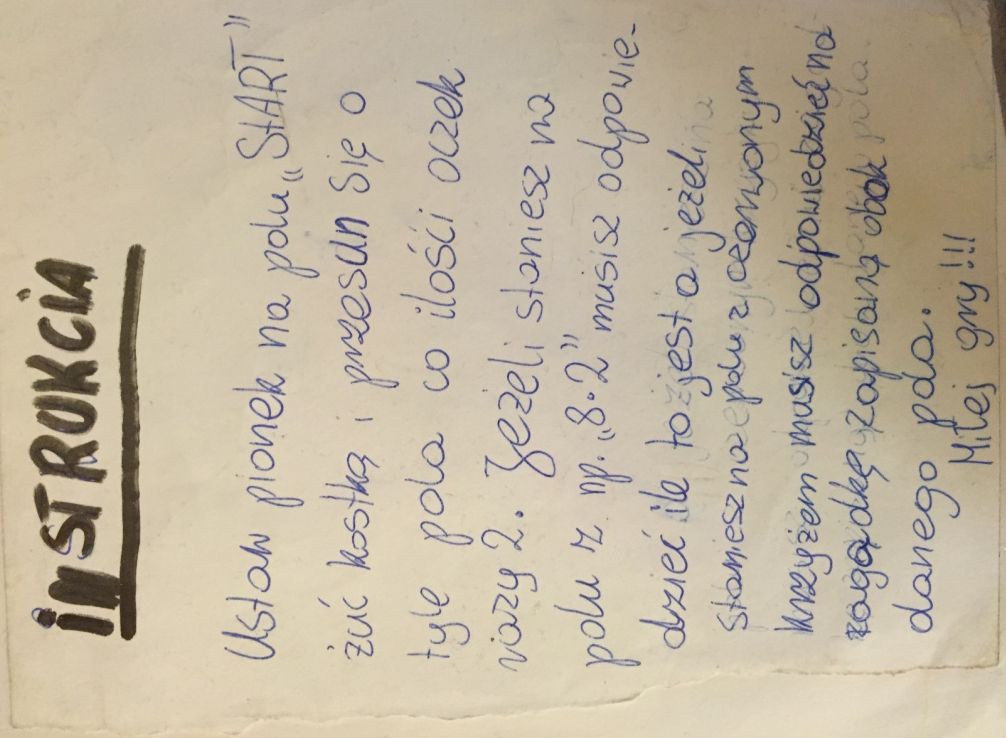 iNSTRUKCIA
Ustaw pionek na polu „START"
żuć kostką i przesun się o
tyle pola co ilośći oczek
razy 2. Jeżeli staniesz na
polu z np. „8·2" musisz odpowie-
dzieć ile to jest a jeżeli
staniesz na polu z czerwonym
krzyżem musisz odpowiedzieć na
zagądkę zapisaną obok
danego pola.
Miłej gry!!!